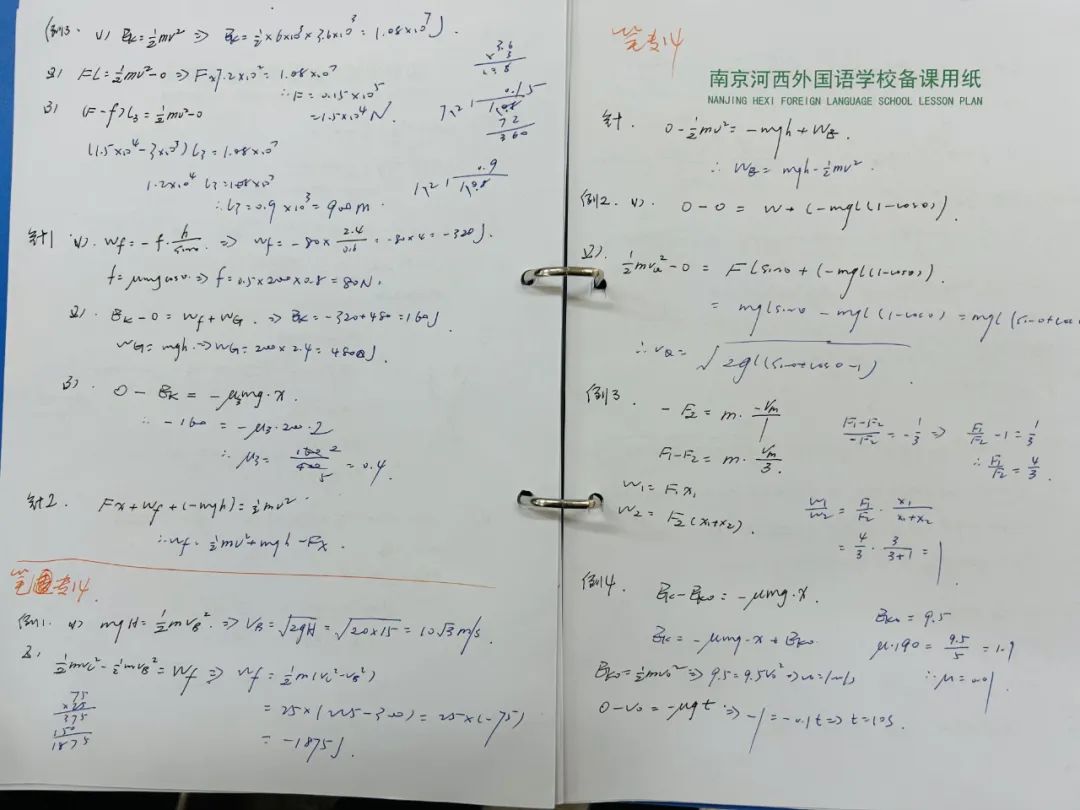 例3. (1) Ek=½mv² ⇒ Ek=½×6×10³×3.6×10³=1.08×10⁷J.
(2) FL=½mv²-0 ⇒ F×7.2×10²=1.08×10⁷
∴F=0.15×10⁵
=1.5×10⁴N.
(3) (F-f)L₃=½mv²-0
(1.5×10⁴-3×10³)L₃=1.08×10⁷
1.2×10⁴ L₃=1.08×10⁷
∴L₃=0.9×10³=900m.
针1 (1). Wf=-f·h/sinθ. ⇒ Wf=-80×2.4/0.6=-80×4=-320J.
f=μmgcosθ ⇒ f=0.5×200×0.8=80N.
(2). Ek-0=Wf+WG. ⇒ Ek=-320+480=160J
WG=mgh. ⇒ WG=200×2.4=480J.
(3). 0-Ek=-μ₃mg·x.
∴-160=-μ₃·200·2
∴μ₃= =0.4.
针2. Fx+Wf+(-mgh)=½mv²
∴Wf=½mv²+mgh-Fx.
笔专14
例1. (1) mgH=½mvB². ⇒ VB=√2gH=√20×15=10√3m/s.
(2) ½mvc²-½mvB²=Wf ⇒ Wf=½m(vc²-vB²)
=25×(225-300)=25×(-75)
=-1875J.
75
×25
375
150
1875
笔专14
南京河西外国语学校备课用纸
NANJING HEXI FOREIGN LANGUAGE SCHOOL LESSON PLAN
针1. 0-½mv²=-mgh+W
∴W=mgh-½mv².
例2. (1). 0-0=W+(-mgl(1-cosθ)).
(2). ½mv²-0=Flsinθ+(-mgl(1-cosθ)).
=mglsinθ-mgl(1-cosθ)=mgl(sinθ+cosθ
∴v=√2gl(sinθ+cosθ-1).
例3. -F₂=m·-Vm/1
F₁-F₂=m·Vm/3.
F₁-F₂/-F₂=-1/3 ⇒ F₁/F₂-1=1/3
∴F₁/F₂=4/3.
W₁=F₁x₁
W₂=F₂(x₁+x₂).
W₁/W₂=F₁/F₂·x₁/x₁+x₂
=4/3·3/3+1=1.
例4. Ek-Ek₀=-μmg·x.
Ek=-μmg·x+Ek₀
Ek₀=9.5
μ·190=9.5/5=1.9
∴μ=0.01.
Ek₀=½mv₀² ⇒ 9.5=9.5v₀² ⇒ v₀=1m/s
0-v₀=-μgt ⇒ -1=-0.1t ⇒ t=10s.